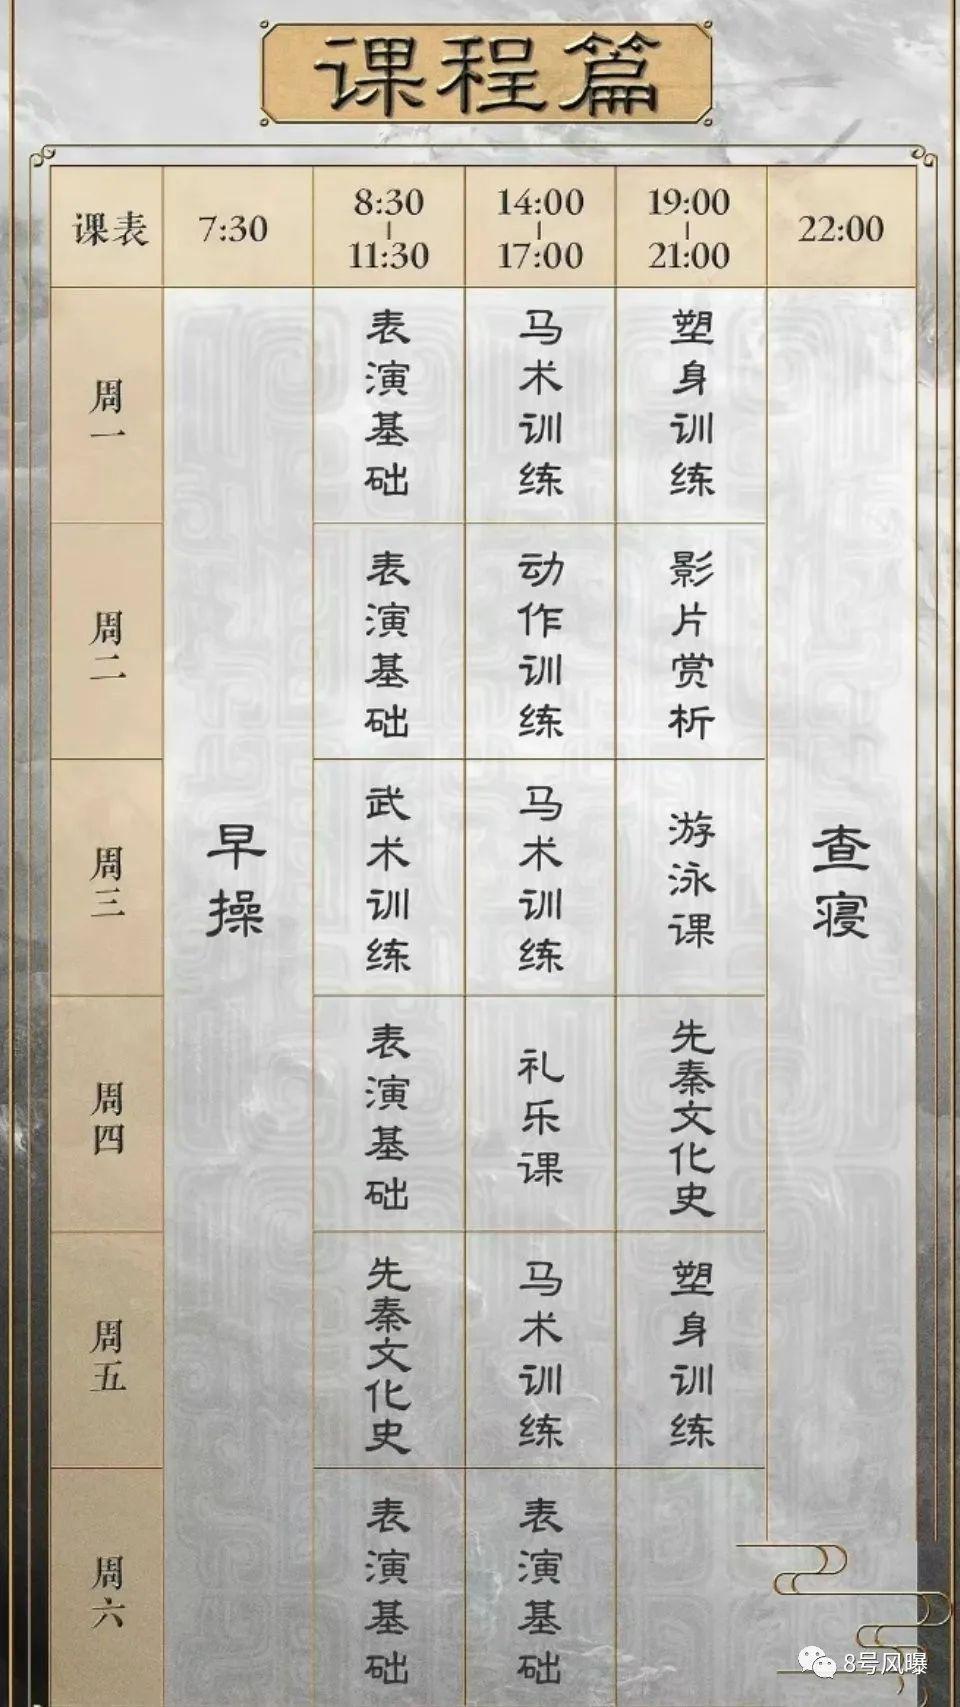 课程篇
课表
7:30
8:30
|
11:30
14:00
|
17:00
19:00
|
21:00
22:00
早操
查寝
周一
表演基础
马术训练
塑身训练
周二
表演基础
动作训练
影片赏析
周三
武术训练
马术训练
游泳课
周四
表演基础
礼乐课
先秦文化史
周五
先秦文化史
马术训练
塑身训练
周六
表演基础
表演基础
8号风曝